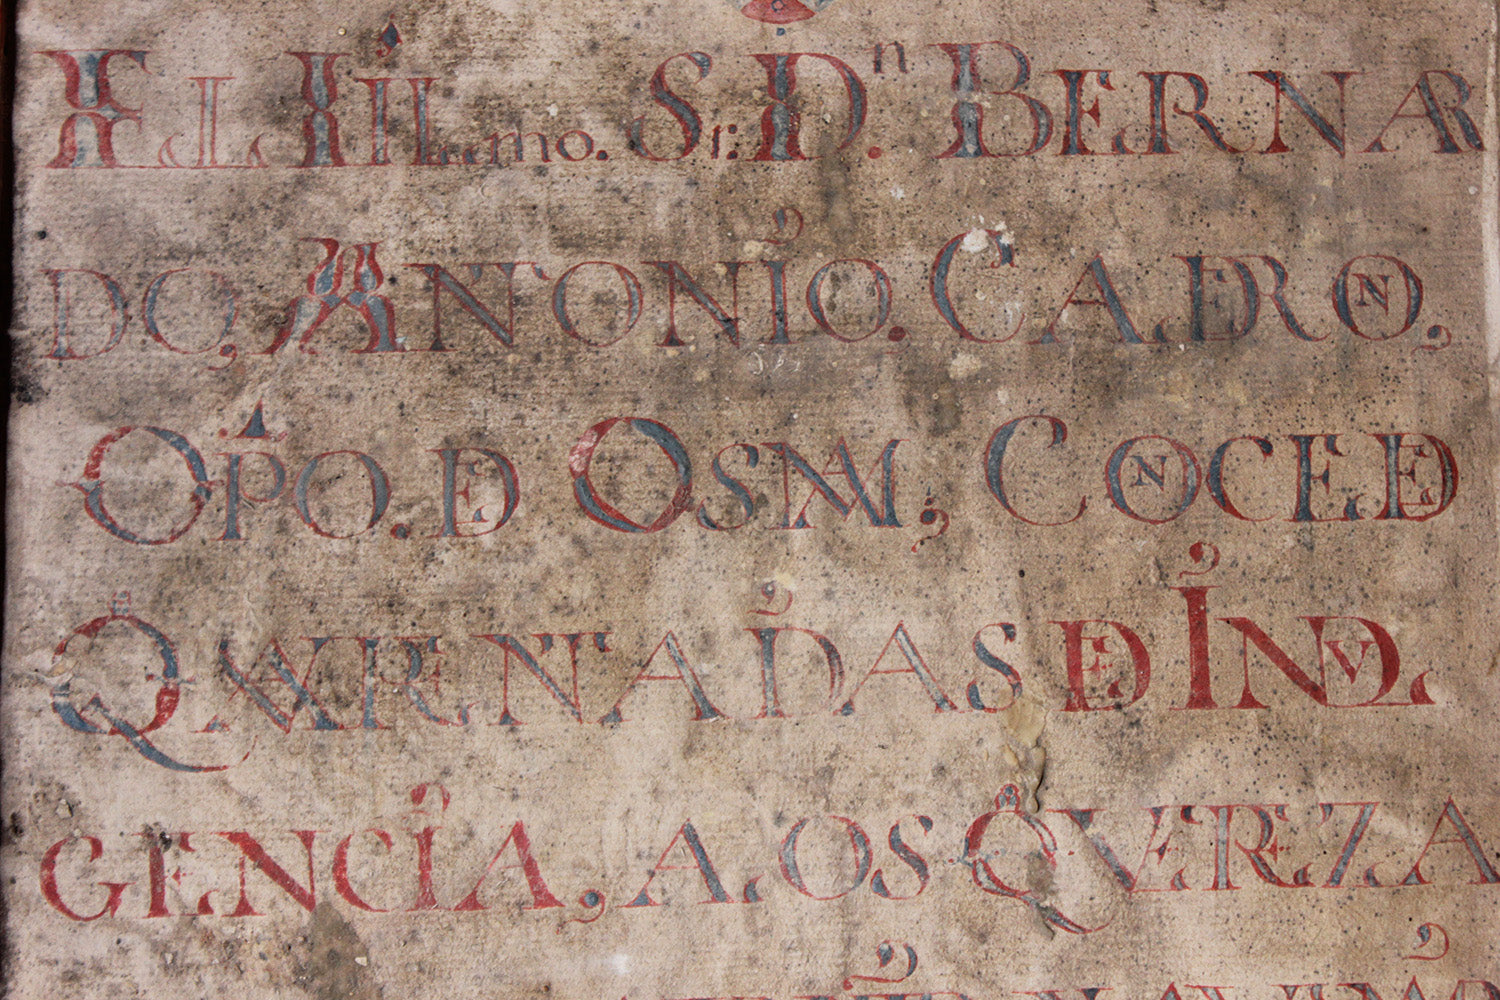 EL ILLmo. Sr: D.n BERNAR
DO, ANTONIO. CALDERON,
OPO. DE OSMA; CONCEDE
QVARENTA DIAS DE INDVL
GENCIA, A LOS QVE REZA